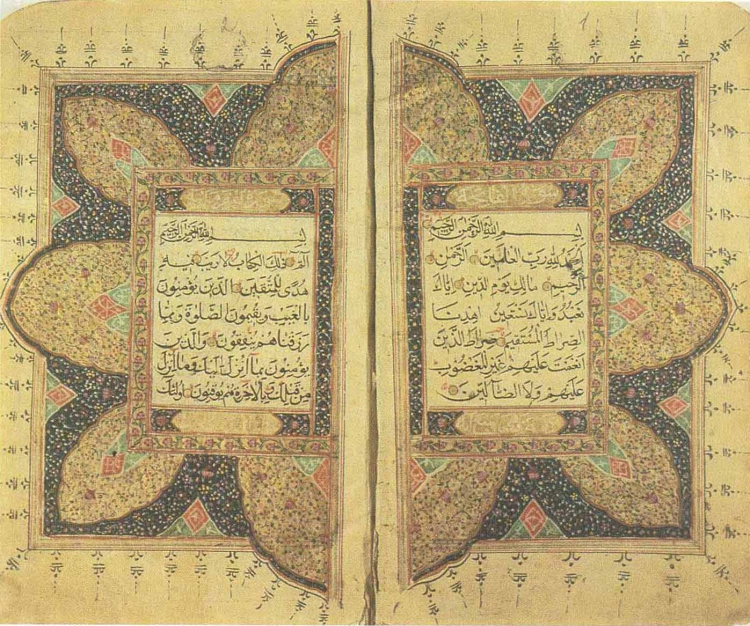 1
بسم الله الرحمن الرحيم
الحمد لله رب العلمين الرحمن
الرحيم مالك يوم الدين اياك
نعبد واياك نستعين اهدنا
الصراط المستقيم صراط الذين
انعمت عليهم غير المغضوب
عليهم ولا الضآلين
2
بسم الله الرحمن الرحيم
الم ذلك الكتاب لا ريب فيه
هدى للمتقين الذين يؤمنون
بالغيب ويقيمون الصلوة ومما
رزقناهم ينفقون والذين
يؤمنون بما انزل اليك وما انزل
من قبلك وبالاخرة هم يوقنون اولئك